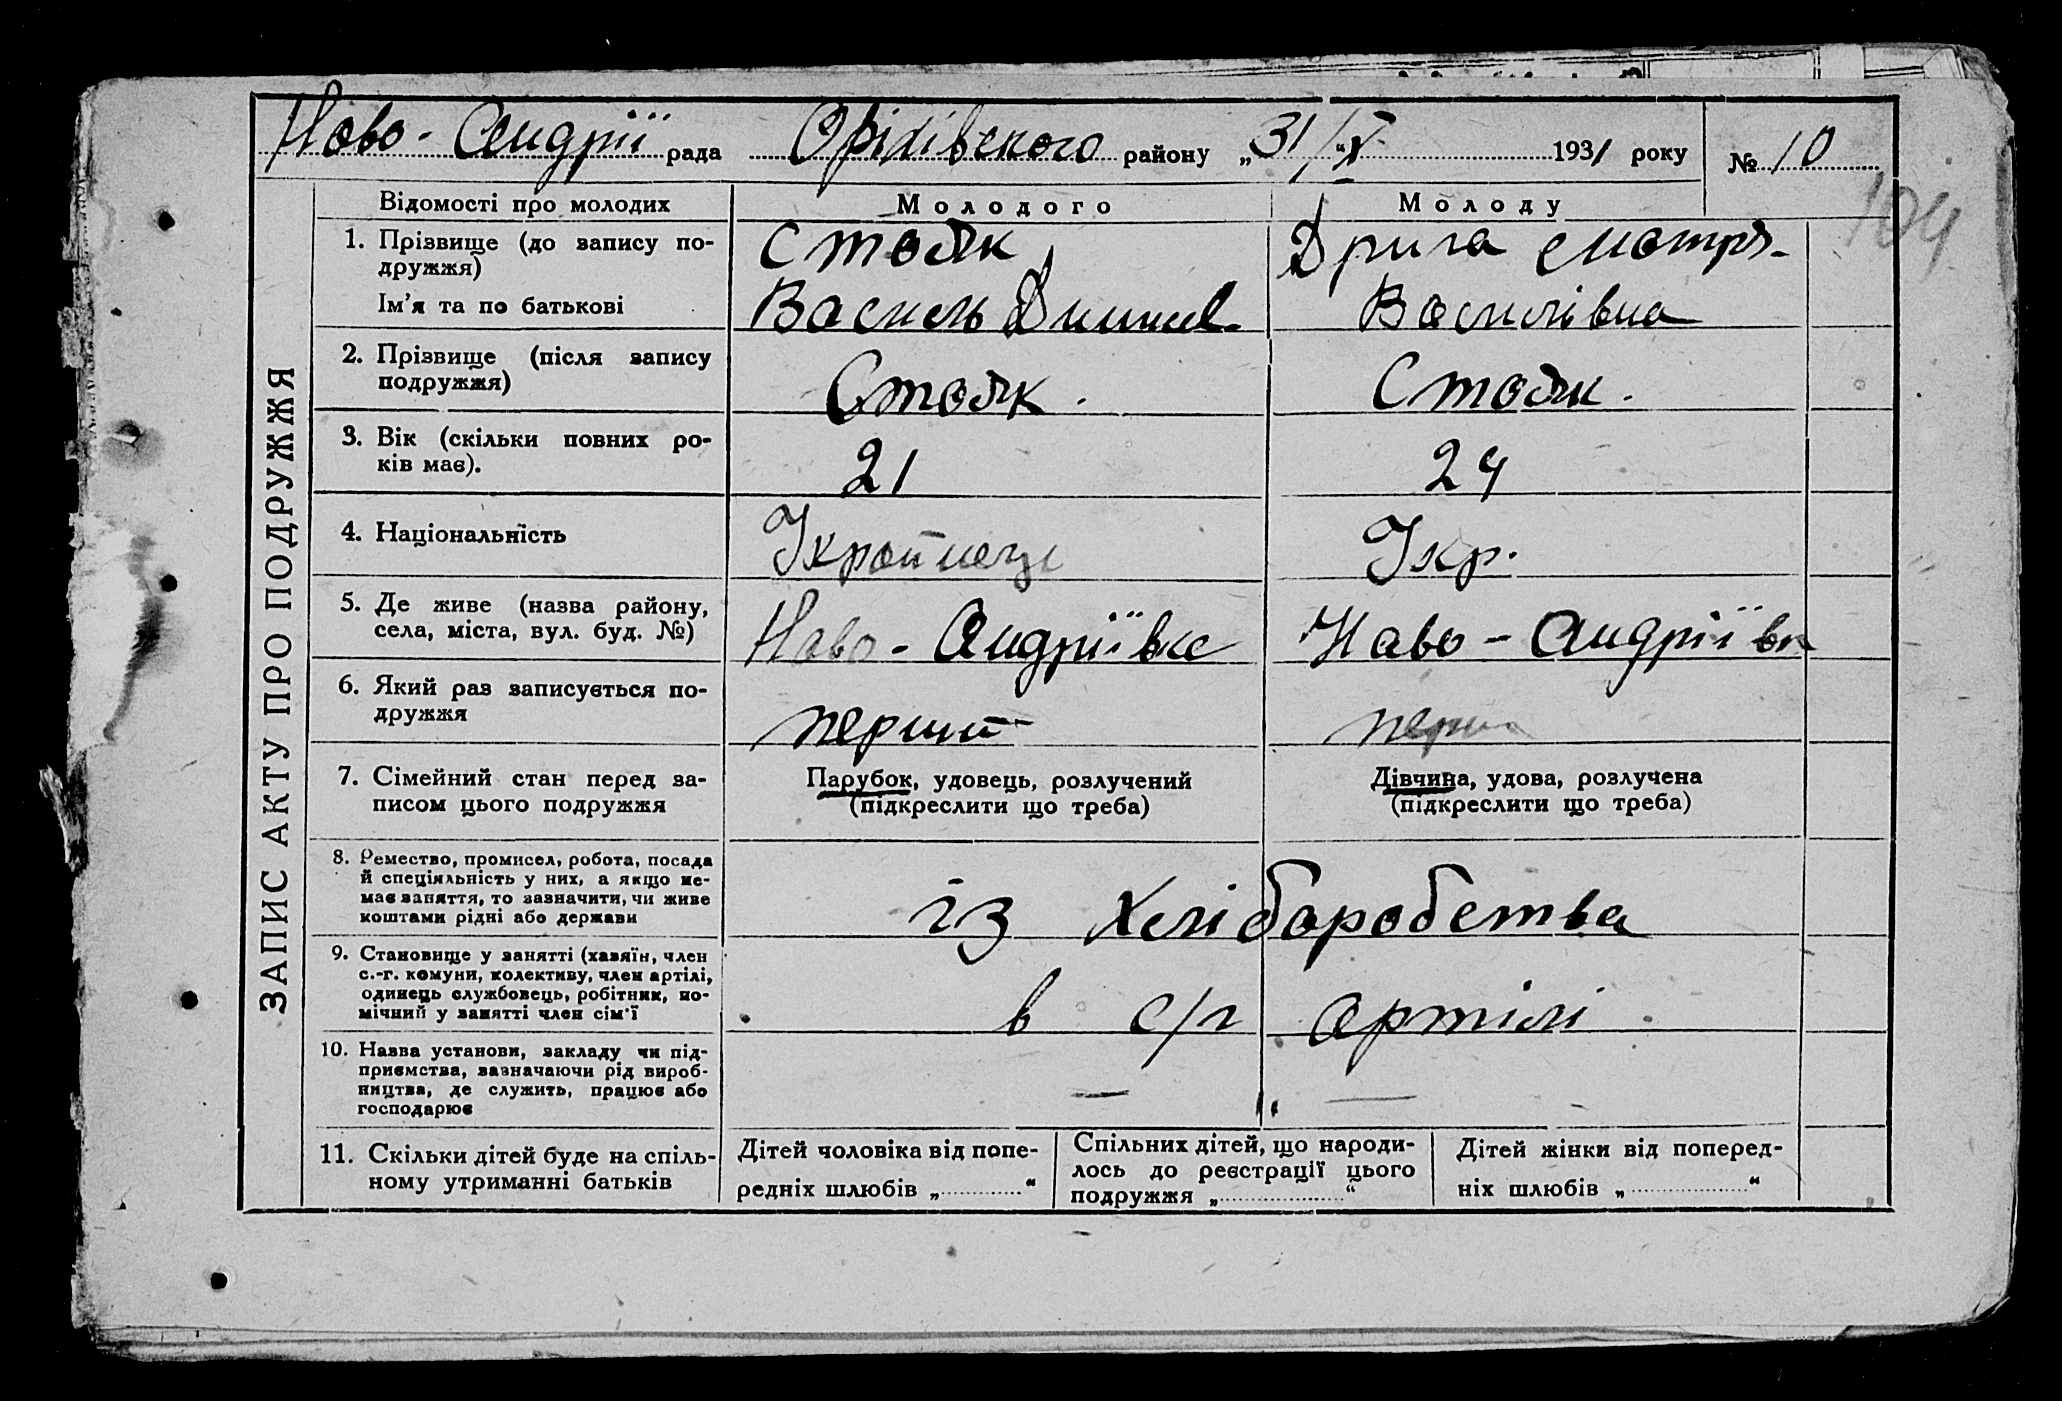 Ново-Андрії рада Оріхівского району „31/X“ 1931 року № 10
104
ЗАПИС АКТУ ПРО ПОДРУЖЖЯ
Відомості про молодих Молодого Молоду
1. Прізвище (до запису по-
дружжя)
Стояк Дрига Мотря
Ім’я та по батькові
Василь Василівна
2. Прізвище (після запису
подружжя)
Стояк. Стояк.
3. Вік (скільки повних ро-
ків має).
21 24
4. Національність
Українець Укр.
5. Де живе (назва району,
села, міста, вул. буд. №)
Ново-Андріївка Ново-Андріївк
6. Який раз записується по-
дружжя
перший перш
7. Сімейний стан перед за-
писом цього подружжя
Парубок, удовець, розлучений
(підкреслити що треба)
Дівчина, удова, розлучена
(підкреслити що треба)
8. Ремество, промисел, робота, посада
й спеціяльність у них, а якщо не-
має заняття, то зазначити, чи живе
коштами рідні або держави
із хліборобства
9. Становище у занятті (хазяїн, член
с.-г. комуни, колективу, член артілі,
одинець службовець, робітник, по-
мічний у занятті член сім’ї
в с/г артілі
10. Назва установи, закладу чи під-
приємства, зазначаючи рід вироб-
ництва, де служить, працює або
господарює
— —
11. Скільки дітей буде на спіль-
ному утриманні батьків
Дітей чоловіка від попе-
редніх шлюбів „ “
Спільних дітей, що народи-
лось до реєстрації цього
подружжя „ “
Дітей жінки від поперед-
ніх шлюбів „ “